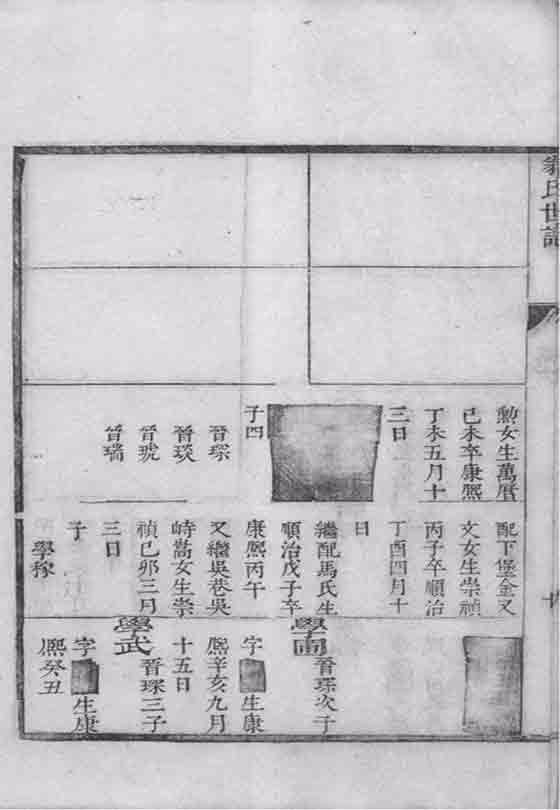 氏世譜
勲女生萬曆
己未卒康熙
丁未五月十
三日
子四
晉琛
晉琰
晉琥
晉瑞
配下堡金又
文女生崇禎
丙子卒順治
丁酉四月十
日
繼配馬氏生
順治戊子卒
康熙丙午
又繼吳巷吳
峙嵩女生崇
禎己卯三月
三日
子
學稼
學圃
晉琛次子
字
生康
熙辛亥九月
十五日
學武
晉琛三子
字
生康
熙癸丑